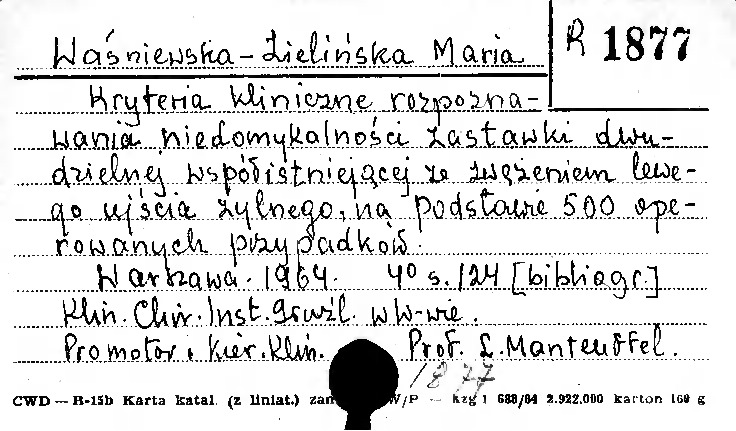 R 1877
Waśniewska-Zielińska Maria
Kryteria kliniczne rozpozna-
wania niedomykalności zastawki dwu-
dzielnej współistniejącej ze zwężeniem lewe-
go ujścia żylnego, na podstawie 500 ope-
rowanych przypadków.
Warszawa. 1964. 4° s. 124 [bibliogr.]
Klin. Chir. Inst. Gruźl. w W-wie.
Promotor i Kier. Klin. Prof. L. Manteuffel.
1877
CWD — R-15b Karta katal. (z liniat.) W/P — 688/64 2.922.000 karton 160 g